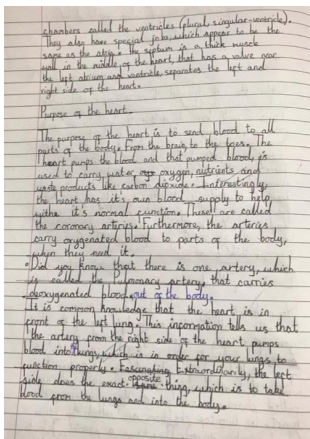 chambers called the ventricles (plural, singular-ventricle).
They also have special jobs, which appear to be the
same as the atria. The septum is a thick muscle
wall in the middle of the heart, that has a valve near
the left atrium and ventricle, separates the left and
right side of the heart.
Purpose of the heart
The purpose of the heart is to send blood to all
parts of the body. From the brain to the toes. The
heart pumps the blood and that pumped blood, is
used to carry water, oxygen, nutrients and
waste products like carbon dioxide. Interestingly,
the heart has it's own blood supply to help
with it's normal function. These are called
the coronary arteries. Furthermore, the arteries
carry oxygenated blood to parts of the body,
when they need it.
Did you know that there is one artery, which
is called the Pulmonary artery, that carries
deoxygenated blood out of the body.
It is common knowledge that the heart is in
front of the left lung. This information tells us that
the artery from the right side of the heart pumps
blood into lungs, which is in order for your lungs to
function properly. Fascinating Extraordinarily, the left
side does the exact opposite thing, which is to take
blood from the lungs and into the body.